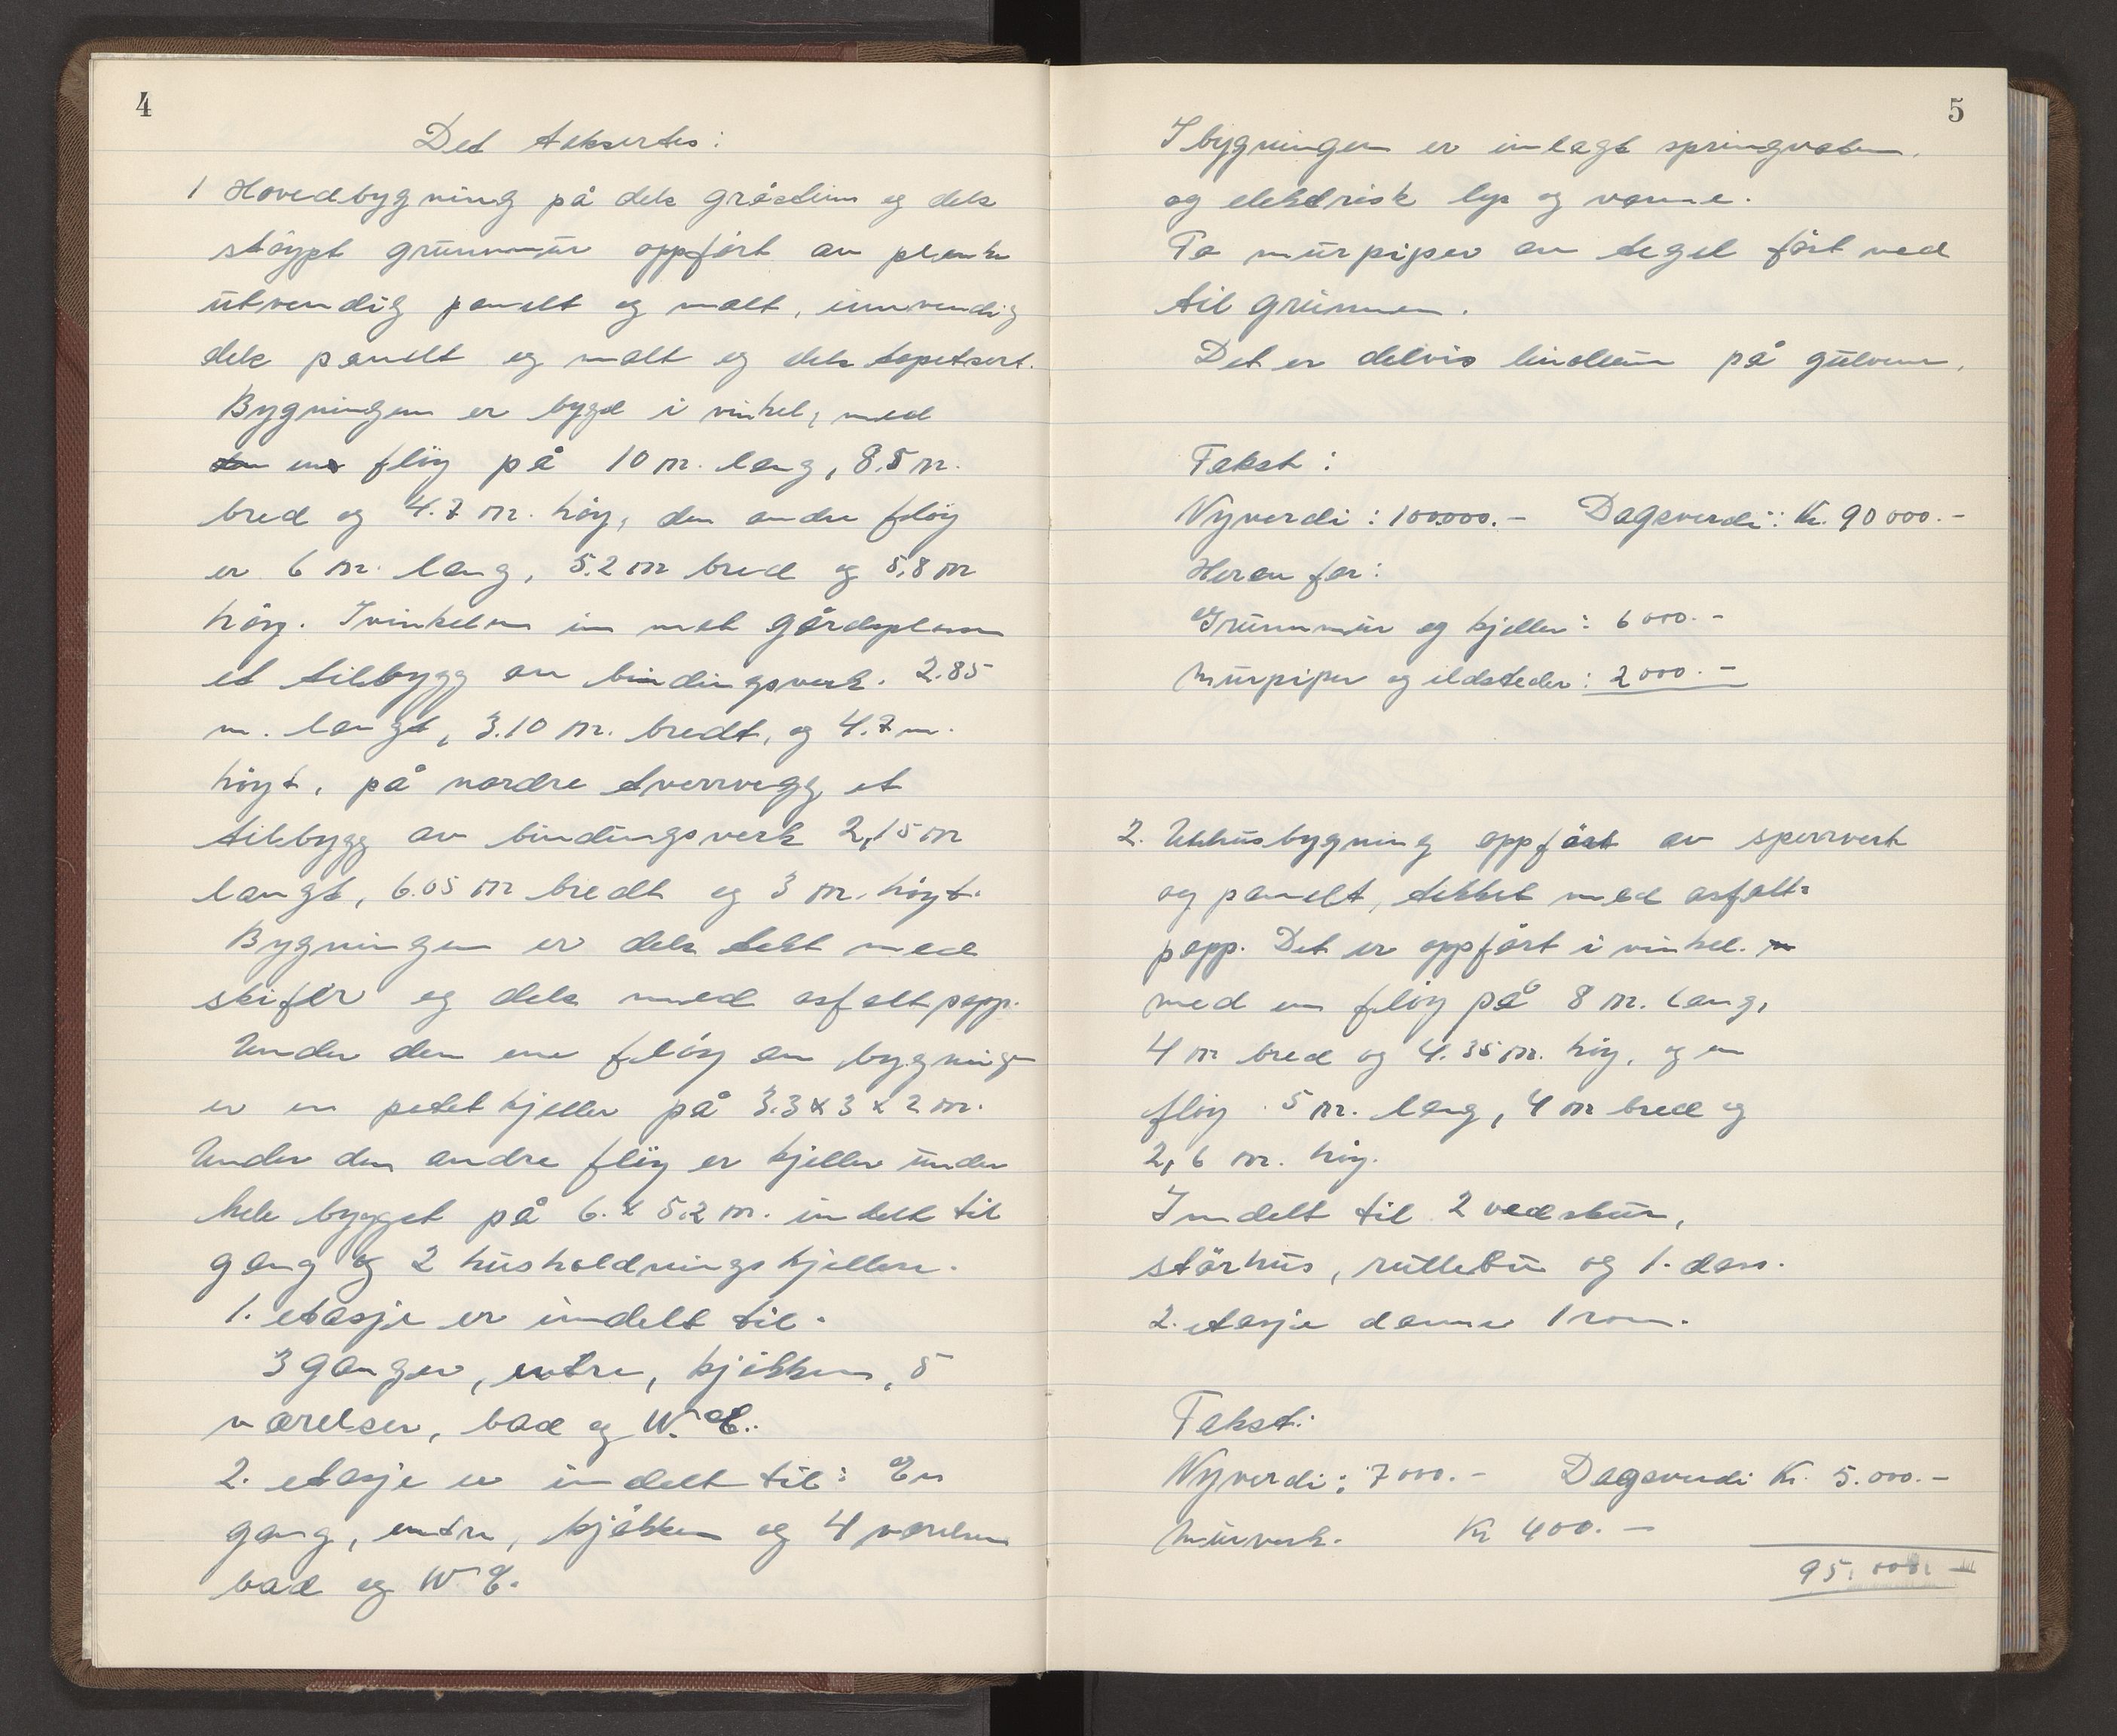 4
Det taksertes:
1 Hovedbygning på dels gråstein og dels
støypt grunnmur oppført av plank
utvendig panelt og malt, innvendig
dels panelt og malt og dels tapetsert.
Bygningen er bygd i vinkel, med
en fløy på 10 m. lang, 8.5 m.
bred og 4.7 m. høy, den andre fløy
er 6 m. lang, 5.2 m bred og 5,8 m
høy. I vinkelen inn mot gårdsplassen
et tilbygg av bindingsverk. 2.85
m. langt, 3.10 m. bredt, og 4.7 m.
høyt, på nordre tverrvegg et
tilbygg av bindingsverk 2,15 m
langt, 6.05 m bredt og 3 m. høyt.
Bygningen er dels tekt med
skifer og dels med asfaltpapp.
Under den ene fløy av bygning
er en potetkjeller på 3.3 x 3 x 2 m.
Under den andre fløy er kjeller under
hele bygget på 6. x 5.2 m. indelt til
gang og 2 husholdningskjellere.
1. etasje er inndelt til.
3 ganger, entre, kjøkken, 5
værelser, bad og W.C.
2. etasje er indelt til: En
gang, entre, kjøkken og 4 værelser
bad og W C.
5
I bygningen er innlagt springvatn.
og elektrisk lys og varme.
To murpiper av tegel ført ned
til grunnen.
Det er delvis linoleum på gulvene.
Takst:
Nyverdi: 100.000.- Dagsverdi: Kr. 90 000.-
Herav for:
Grunnmur og kjeller: 6 000.-
Murpiper og ildsteder: 2 000.-
2. Uthusbygning oppført av sperrverk
og panelt, tekket med asfalt=
papp. Det er oppført i vinkel.
med en fløy på 8 m. lang,
4 m bred og 4.35 m. høy, og en
fløy 5 m. lang, 4 m bred og
2,6 m. høy.
Inndelt til 2 vedskur,
størhus, rullebu og 1. dass.
2. etasje danner 1 rom.
Takst:
Nyverdi: 7 000.- Dagsverdi Kr. 5.000.-
Murverk. Kr 400.-
95.000.-